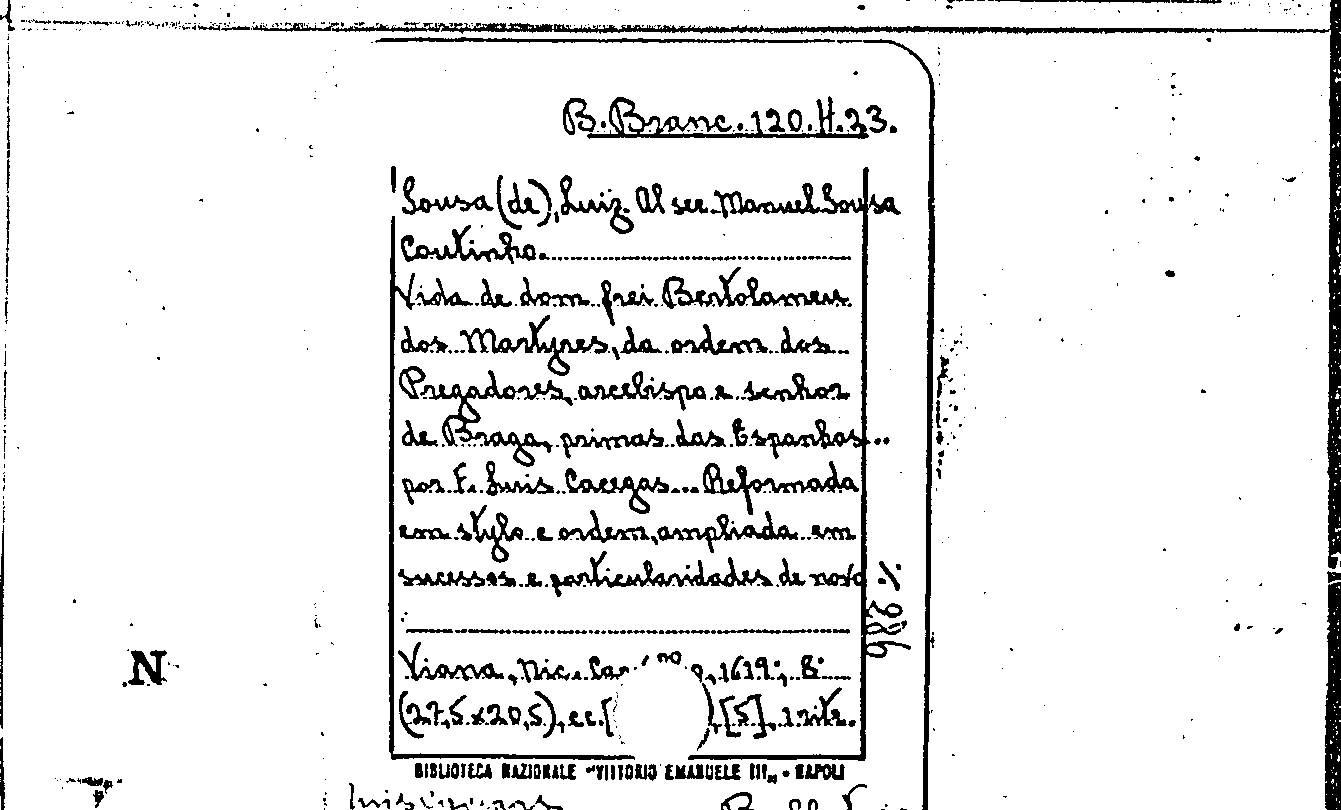 B. Branc. 120.H.23.
Sousa (de), Luiz. Al sec. Manuel Sousa
Coutinho.
Vida de dom frei Bertolameu
dos Martyres, da ordem dos
Pregadores, arcebispo e senhor
de Braga, primas das Espanhas...
por F. Luis Cacegas... Reformada
em stylo e ordem, ampliada em
sucessos e particularidades de novo
286
Viana, Nic. 1619; 8°
(27,5 x 20,5), cc. [ ], [5], 1 ritr.
BIBLIOTECA NAZIONALE "VITTORIO EMANUELE III" - NAPOLI
N